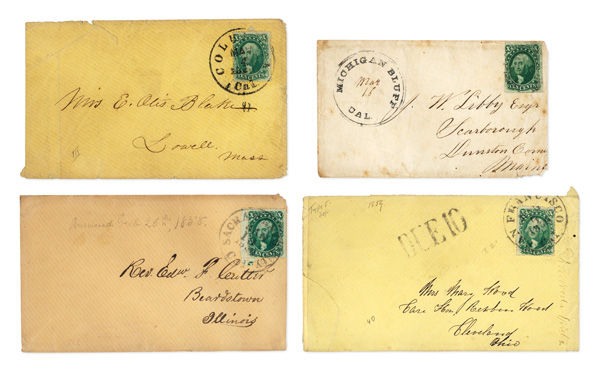 COL
Cal
Mrs E. Otis Blake
Lowell
Mass
MICHIGAN BLUFF
Mar
15
CAL.
J. W. Libby Esqr
Scarborough
Dunston Corner
Maine
SACRA
Rev. Edw. P.
Beardstown
Illinois
1859
DUE 10
N FRANCISCO
Mrs Mary Wood
Care Hon. Reuben Wood
40
Cleveland
Ohio